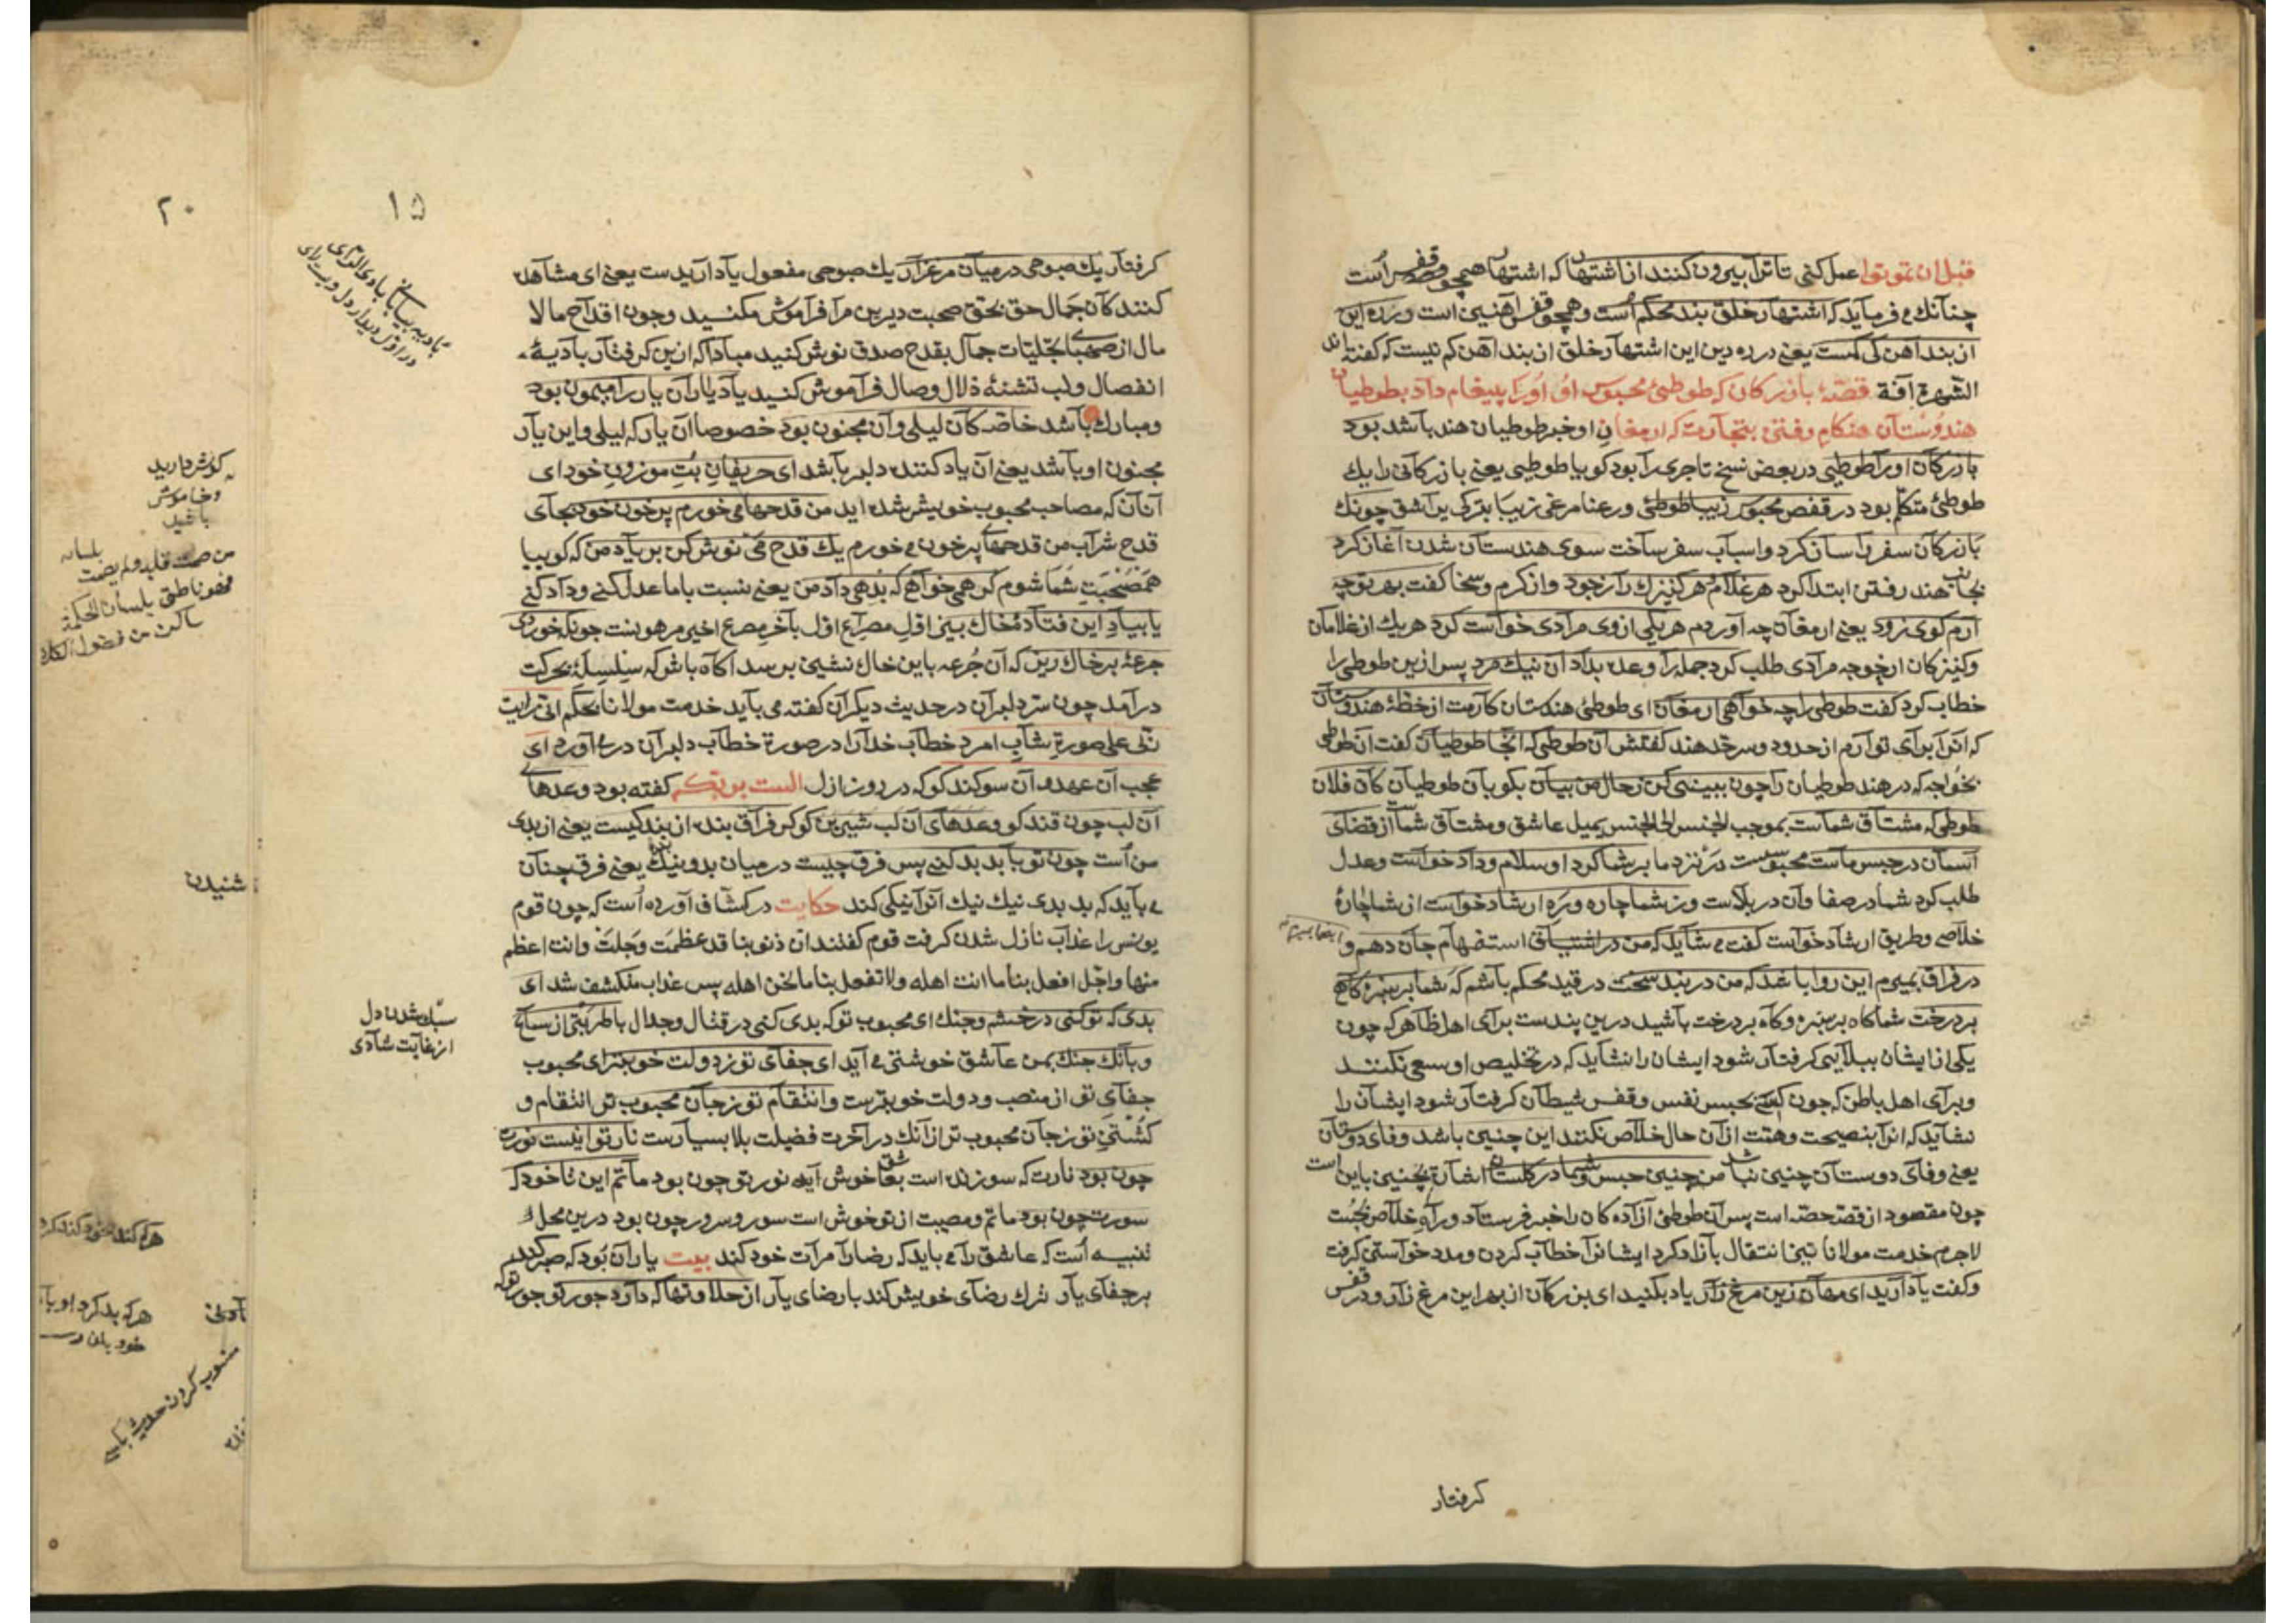 قبل ان تموتوا عمل کنی تا ترا بیرون کنند از اشتهار که اشتهار همچو قفص است
چنانك می فرماید که اشتهار خلق بند محکم است و همچو قفس آهنین است و در ره این
از بند آهن کی کمست یعنی در ره دین این اشتهار خلق از بند آهن کم نیست که گفته اند
الشهرة آفة قصّهٔ بازرکان که طوطئ محبوس او اورا پیغام داد بطوطیان
هندوستان هنکام رفتن بتجارت که ارمغان او خبر طوطیان هند باشد بود
بازرکان اورا طوطیی در بعض نسخ تاجری را بود کویا طوطیی یعنی بازرکانی را یك
طوطئ متکلّم بود در قفص محبوس زیبا طوطئ و رعنا مرغی زیبا بترکی یراشق چونك
بازرکان سفر را ساز کرد و اسباب سفر ساخت سوی هندستان شدن آغاز کرد
بجانب هند رفتن ابتدا کرد هر غلام و هر کنیزك را ز جود و از کرم و سخا کفت بهر تو چه
آرم کوی زود یعنی ارمغان چه آوردم هر یکی از وی مرادی خواست کرد هر یك از غلامان
و کنیزکان از خوجه مرادی طلب کرد جمله را وعده بداد آن نیك مرد پس ازین طوطی را
خطاب کرد کفت طوطی را چه خواهی ارمغان ای طوطئ هندستان کارمت از خطّهٔ هندوستان
که انرا برای تو آرم از حدود و سرحد هند کفتش آن طوطی که آنجا طوطیان کفت آن طوطی
بخواجه که در هند طوطیان را چون ببینی کن ز حال من بیان بکو بآن طوطیان کان فلان
طوطی که مشتاق شماست بموجب الجنس الی الجنس یمیل عاشق و مشتاق شماست از قضای
آسمان در حبس ماست محبوسست در نزد ما بر شما کرد او سلام و داد خواست و عدل
طلب کرد شما در صفا و آن در بلاست وز شما چاره و ره ارشاد خواست از شما چارهٔ
خلاصی و طریق ارشاد خواست کفت می شاید که من در اشتیاق استفهام جان دهم و اینجا بمیرم
در فراق بمیرم این روا باشد که من در بند سخت در قید محکم باشم که شما بر سبزه کاهی
بر درخت شما کاه بر سبزه و کاه بر درخت باشید درین پندست برای اهل ظاهر که چون
یکی از ایشان ببلایی کرفتار شود ایشان را نشاید که در تخلیص او سعی نکنند
و برای اهل باطن که چون کسی بحبس نفس و قفس شیطان کرفتار شود ایشان را
نشاید که انرا بنصیحت و همّت از آن حال خلاص نکنند این چنین باشد وفای دوستان
یعنی وفای دوستان چنین نباشد من چنین حبس و شما در کلستان اشارت بچنین باین است
چون مقصود از قصّه حصّه است پس آن طوطئ آزاده کان را خبر فرستاد و راه خلاص بجست
لاجرم خدمت مولانا نیز انتقال بآزاد کرد ایشانرا خطاب کردن و مدد خواستن کرفت
و کفت یاد آرید ای مهان زین مرغ زار یاد بکنید ای بزرکان از بهر این مرغ زار و در قفس
کرفتار
۱۵
کرفتار یك صبوحی در میان مرغزار یك صبوحی مفعول یاد آریدست یعنی ای مشاهده
کنند کان جمال حق بحق صحبت دیرین مرا فراموش مکنید و چون اقداح مالا
مال از صهبای تجلیات جمال بقدح صدق نوش کنید مبادا که ازین کرفتار بادیهٔ
انفصال و لب تشنهٔ ذلال وصال فراموش کنید یاد یاران یار را میمون بود
و مبارك باشد خاصه کان لیلی و آن مجنون بود خصوصا آن یار که لیلی و این یار
مجنون او باشد یعنی آن یاد کننده دلبر باشد ای حریفان بت موزون خود ای
آنان که مصاحب محبوب خویش شده اید من قدحها می خورم پر خون خود بجای
قدح شراب من قدحهای پر خون می خورم یك قدح می نوش کن بر یاد من که کوییا
همصحبت شما شوم کر همی خواهی که بدهی داد من یعنی نسبت با ما عدل کنی و داد کنی
یا بیاد این فتادهٔ خاك بیز اوّل مصراع اوّل بآخر مصرع اخیر مرهونست چونکه خوردی
جرعهٔ بر خاك ریز که آن جرعه باین خاك نشین برسد آکاه باش که سلسلهٔ بحرکت
در آمد چون سرّ دلبران در حدیث دیکران کفته می باید خدمت مولانا بحکم انی رایت
ربّی علی صورة شابّ امرد خطاب خدا را در صورة خطاب دلبران در می آورد ای
عجب آن عهد و آن سوکند کو که در روز ازل الست بربّکم کفته بود وعدهای
آن لب چون قند کو وعدهای آن لب شیرین کو کر فراق بنده از بند کیست یعنی از بدی
من است چون تو با بد بد کنی پس فرق چیست در میان بد و نیك یعنی فرق چنان
می باید که بد بدی نیك نیك آنرا نیکی کند حکایت در کشّاف آورده است که چون قوم
یونس را عذاب نازل شدن کرفت قوم کفتند ان ذنوبنا قد عظمت و جلت وانت اعظم
منها واجل افعل بنا ما انت اهله ولا تفعل بنا ما نحن اهله پس عذاب منکشف شد ای
بدی که تو کنی در خشم و جنك ای محبوب تو که بدی کنی در قتال و جدال با طرب تر از سماع
و بانك جنك بمن عاشق خوشتر می آید ای جفای تو ز دولت خوبتر ای محبوب
جفای تو از منصب و دولت خوبترست و انتقام تو ز جان محبوب تر انتقام و
کشتن تو ز جان محبوب تر از آنك در آخرت فضیلت بلا بسیارست نار تو اینست نورت
چون بود نارت که سوزنده است بعاشق خوش آید نور تو چون بود ماتم این تا خود که
سورت چون بود ماتم و مصیبت از تو خوش است سور و سرور چون بود درین محل
تنبیه است که عاشق را می باید که رضا را مرآت خود کند بیت یار آن بود که صبر کند
بر جفای یار ترك رضای خویش کند با رضای یار از حلاوتها که دارد جور تو جور تو که
بادیه بیابان
سبك شدن دل
از غایت شادی
۲۰
کوش دارید
و خاموش
باشید
من صمت قلبه ولم یصمت لسانه
فهو ناطق بلسان الحکمة
ساکن من فضول الکلام
شنیدن
هر که بد کرد او با
منسوب کردن حدیث